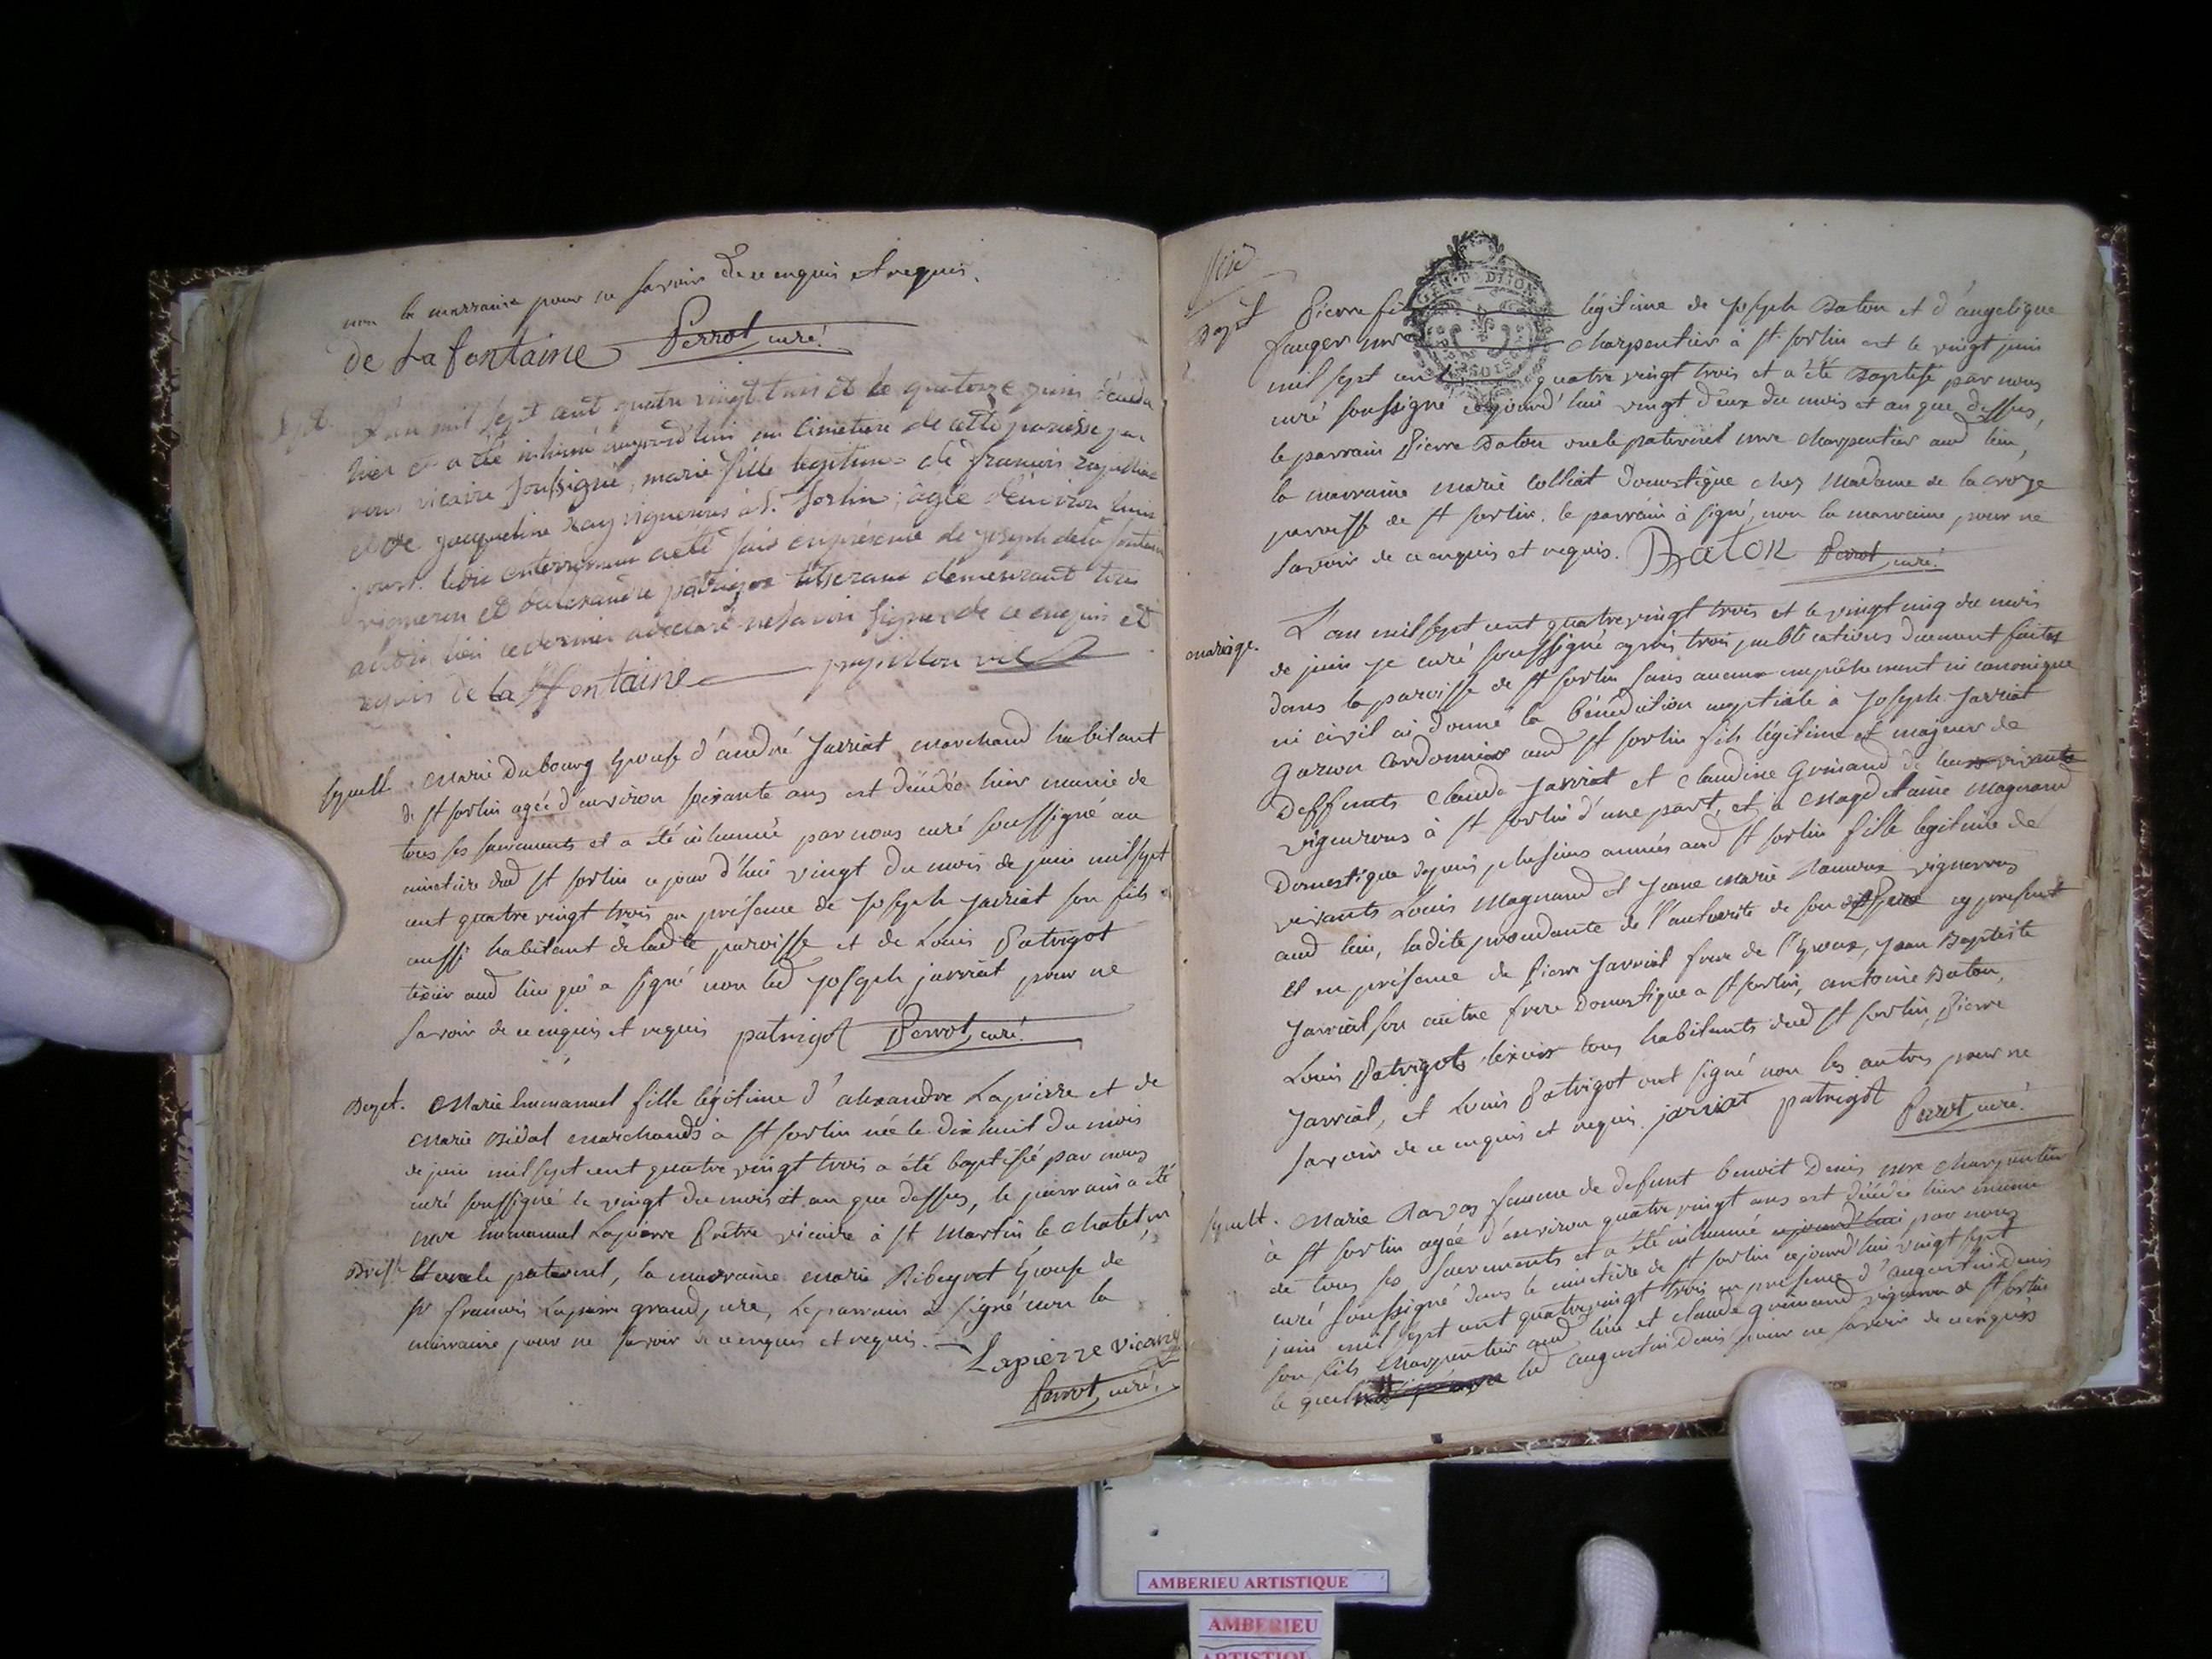 non la marraine pour ne savoir de ce enquis et requis.
de La fontaine Perrot, curé.
L'an mil sept cent quatre vingt trois et le quatorze juin décédée
hier et a été inhumé aujourd'huy au cimetiere de cette paroisse par
nous vicaire soussigné, marie fille legitime de francois
et de jacqueline vignerons à St. Sorlin; agée d'environ huit
jours. enterrement a été fait en présence de joseph de la fontaine
vigneron et d'alexandre patrigot tisserant demeurant tous
audit lieu ce dernier a declaré ne savoir signer de ce enquis et
requis de la ffontaine papillon vic
Sepult. Marie Dubourg Epouse d'andré Jarriat marchand habitant
de St Sorlin agée d'environ soixante ans est décédée hier munie de
tous ses sacrements et a été inhumée par nous curé soussigné au
cimetière dud St Sorlin ce jour d'hui vingt du mois de juin mil sept
cent quatre vingt trois en présence de Joseph Jarriat son fils
aussi habitant de ladte paroisse et de Louis Patrigot
texier aud lieu qui a signé non led Joseph jarriat pour ne
savoir de ce enquis et requis patrigot Perrot, curé.
Bapt. Marie Emmanuel fille légitime d'alexandre Lapierre et de
Marie Bidal marchands à St Sorlin née le dix huit du mois
de juin mil sept cent quatre vingt trois a été baptisée par nous
curé soussigné le vingt du mois et an que dessus, le parrain a été
mre Emmanuel Lapierre Prêtre vicaire à St Martin le Chatel, en
Bresse oncle paternel, la marraine Marie Ribeyret Epouse de
Sr francois Lapierre grand pere, Le parrain à signé non la
marraine pour ne savoir de ce enquis et requis.
Lapierre vicaire
Perrot, curé.
GEN. D. DIJON
Bapt Pierre fils légitime de Joseph Baton et d'angelique
fauger mre charpentier à St Sorlin est le vingt juin
mil sept cent quatre vingt trois et a été Baptisé par nous
curé soussigné cejourd'hui vingt deux du mois et an que dessus,
le parrain Pierre Baton oncle paternel mre charpentier aud lieu,
la marraine marie Colliat domestique chez Madame de la croze
paroisse de St Sorlin. le parrain à signé, non la marraine pour ne
savoir de ce enquis et requis. Baton Perrot, curé.
mariage. L'an mil sept cent quatre vingt trois et le vingt cinq du mois
de juin je curé soussigné après trois publications duement faites
dans la paroisse de St Sorlin sans aucun empêchement ni canonique
ni civil ai donné la bénédiction nuptiale à Joseph Jarriat
garcon Cordonnier aud St Sorlin fils légitime et majeur de
deffunts Claude Jarriat et Claudine Grimaud de leur vivants
vignerons à St Sorlin d'une part, et à Magdelaine Magnand
Domestique depuis plusieurs années aud St Sorlin fille legitime de
vivants Louis Magnand et Jeanne Marie vignerons
aud lieu, ladite procedante de l'authorité de son dit Pere cy present
et en présence de Pierre Jarriat frere de l'Epoux, Jean Baptiste
Jarriat son autre frere domestique a St Sorlin, antoine Baton,
Louis Patrigot texier tous habitants dud St Sorlin, Pierre
Jarriat, et Louis Patrigot ont signé non les autres pour ne
savoir de ce enquis et requis. jarriat patrigot Perrot, curé.
Sepult. Marie Ravas femme de defunt benoit Denis mre charpentier
à St Sorlin agée d'environ quatre vingt ans est décédée hier munie
de tous ses sacrements et a été inhumée cejourd'hui par nous
curé soussigné dans le cimetière de St Sorlin cejourd'hui vingt sept
juin mil sept cent quatre vingt trois en presence d'augustin Denis
son fils charpentier aud lieu et claude grimaud vigneron à St Sorlin
le quel led augustin Denis pour ne savoir de ce enquis
AMBERIEU ARTISTIQUE
AMBERIEU
ARTISTIQUE